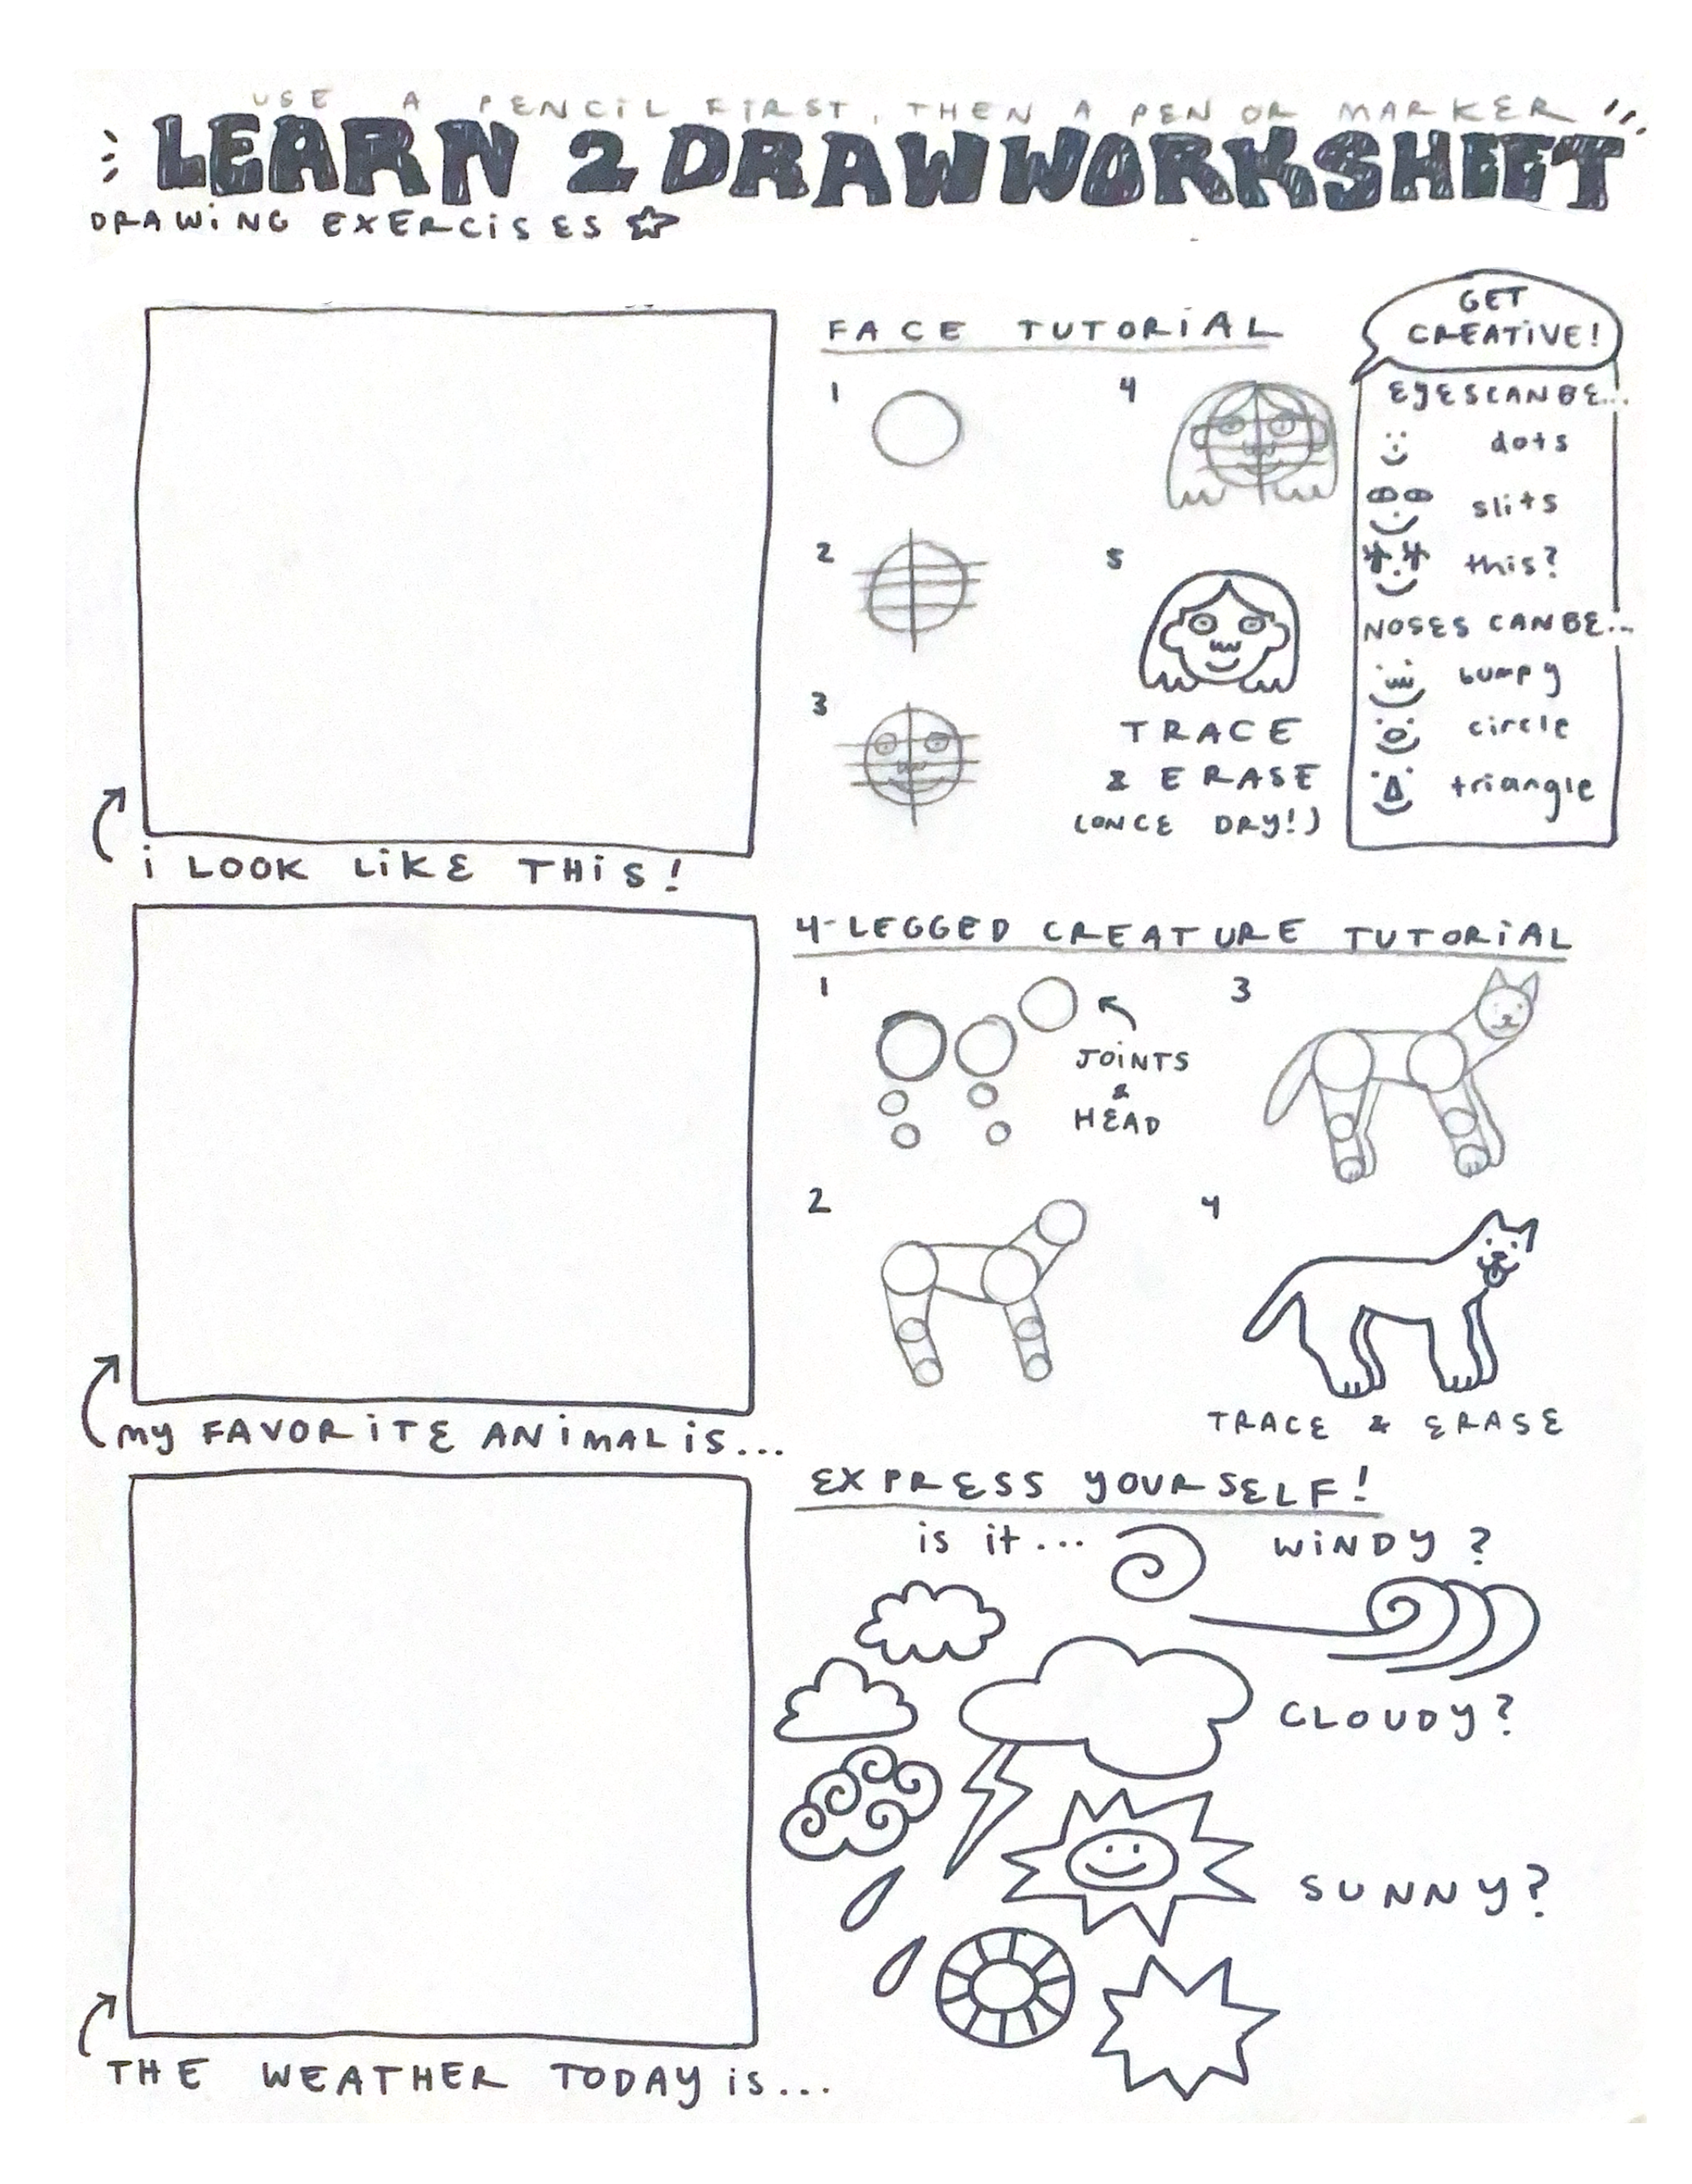 USE A PENCIL FIRST, THEN A PEN OR MARKER
LEARN 2 DRAW WORKSHEET
DRAWiNG EXERCiSES
FACE TUTORiAL
GET
CREATiVE!
1
4
EyES CAN BE...
dots
slits
2
5
this?
NOSES CAN BE...
bumpy
3
circle
TRACE
& ERASE
(ONCE DRY!)
triangle
i LOOK LiKE THiS!
4-LEGGED CREATURE TUTORiAL
1
3
JOiNTS
&
HEAD
2
4
TRACE & ERASE
my FAVORiTE ANiMAL iS...
EXPRESS yOURSELF!
is it...
WiNDy?
CLOUDy?
SUNNy?
THE WEATHER TODAy is...